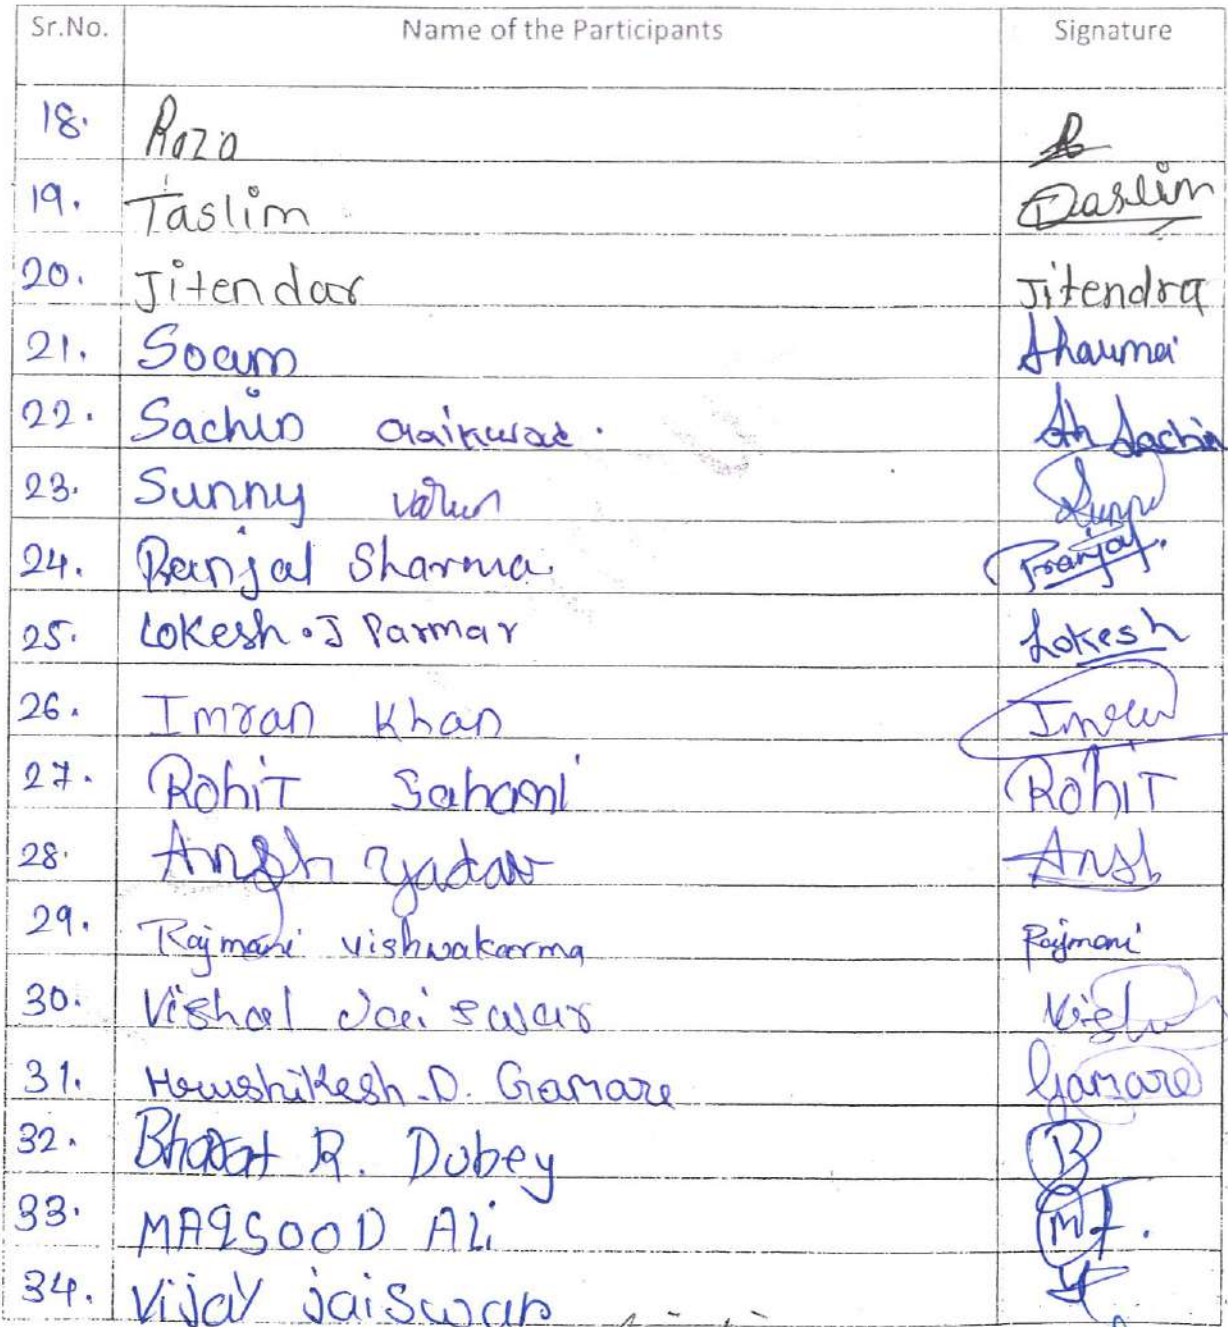 Sr.No. Name of the Participants Signature
18. Raza
19. Taslim Taslim
20. Jitendar Jitendra
21. Soam Sharma
22. Sachin Gaikwad. Sachin
23. Sunny Varun Sunny
24. Pranjal Sharma Pranjal.
25. Lokesh.J Parmar Lokesh
26. Imran Khan Imran
27. Rohit Sahani Rohit
28. Ansh Yadav Ansh
29. Rajmani vishwakarma Rajmani
30. Vishal Jaiswar
31. Hrushikesh.D. Gamare Gamare
32. Bharat R. Dubey B
33. MAQSOOD ALi
34. Vijay jaiswar